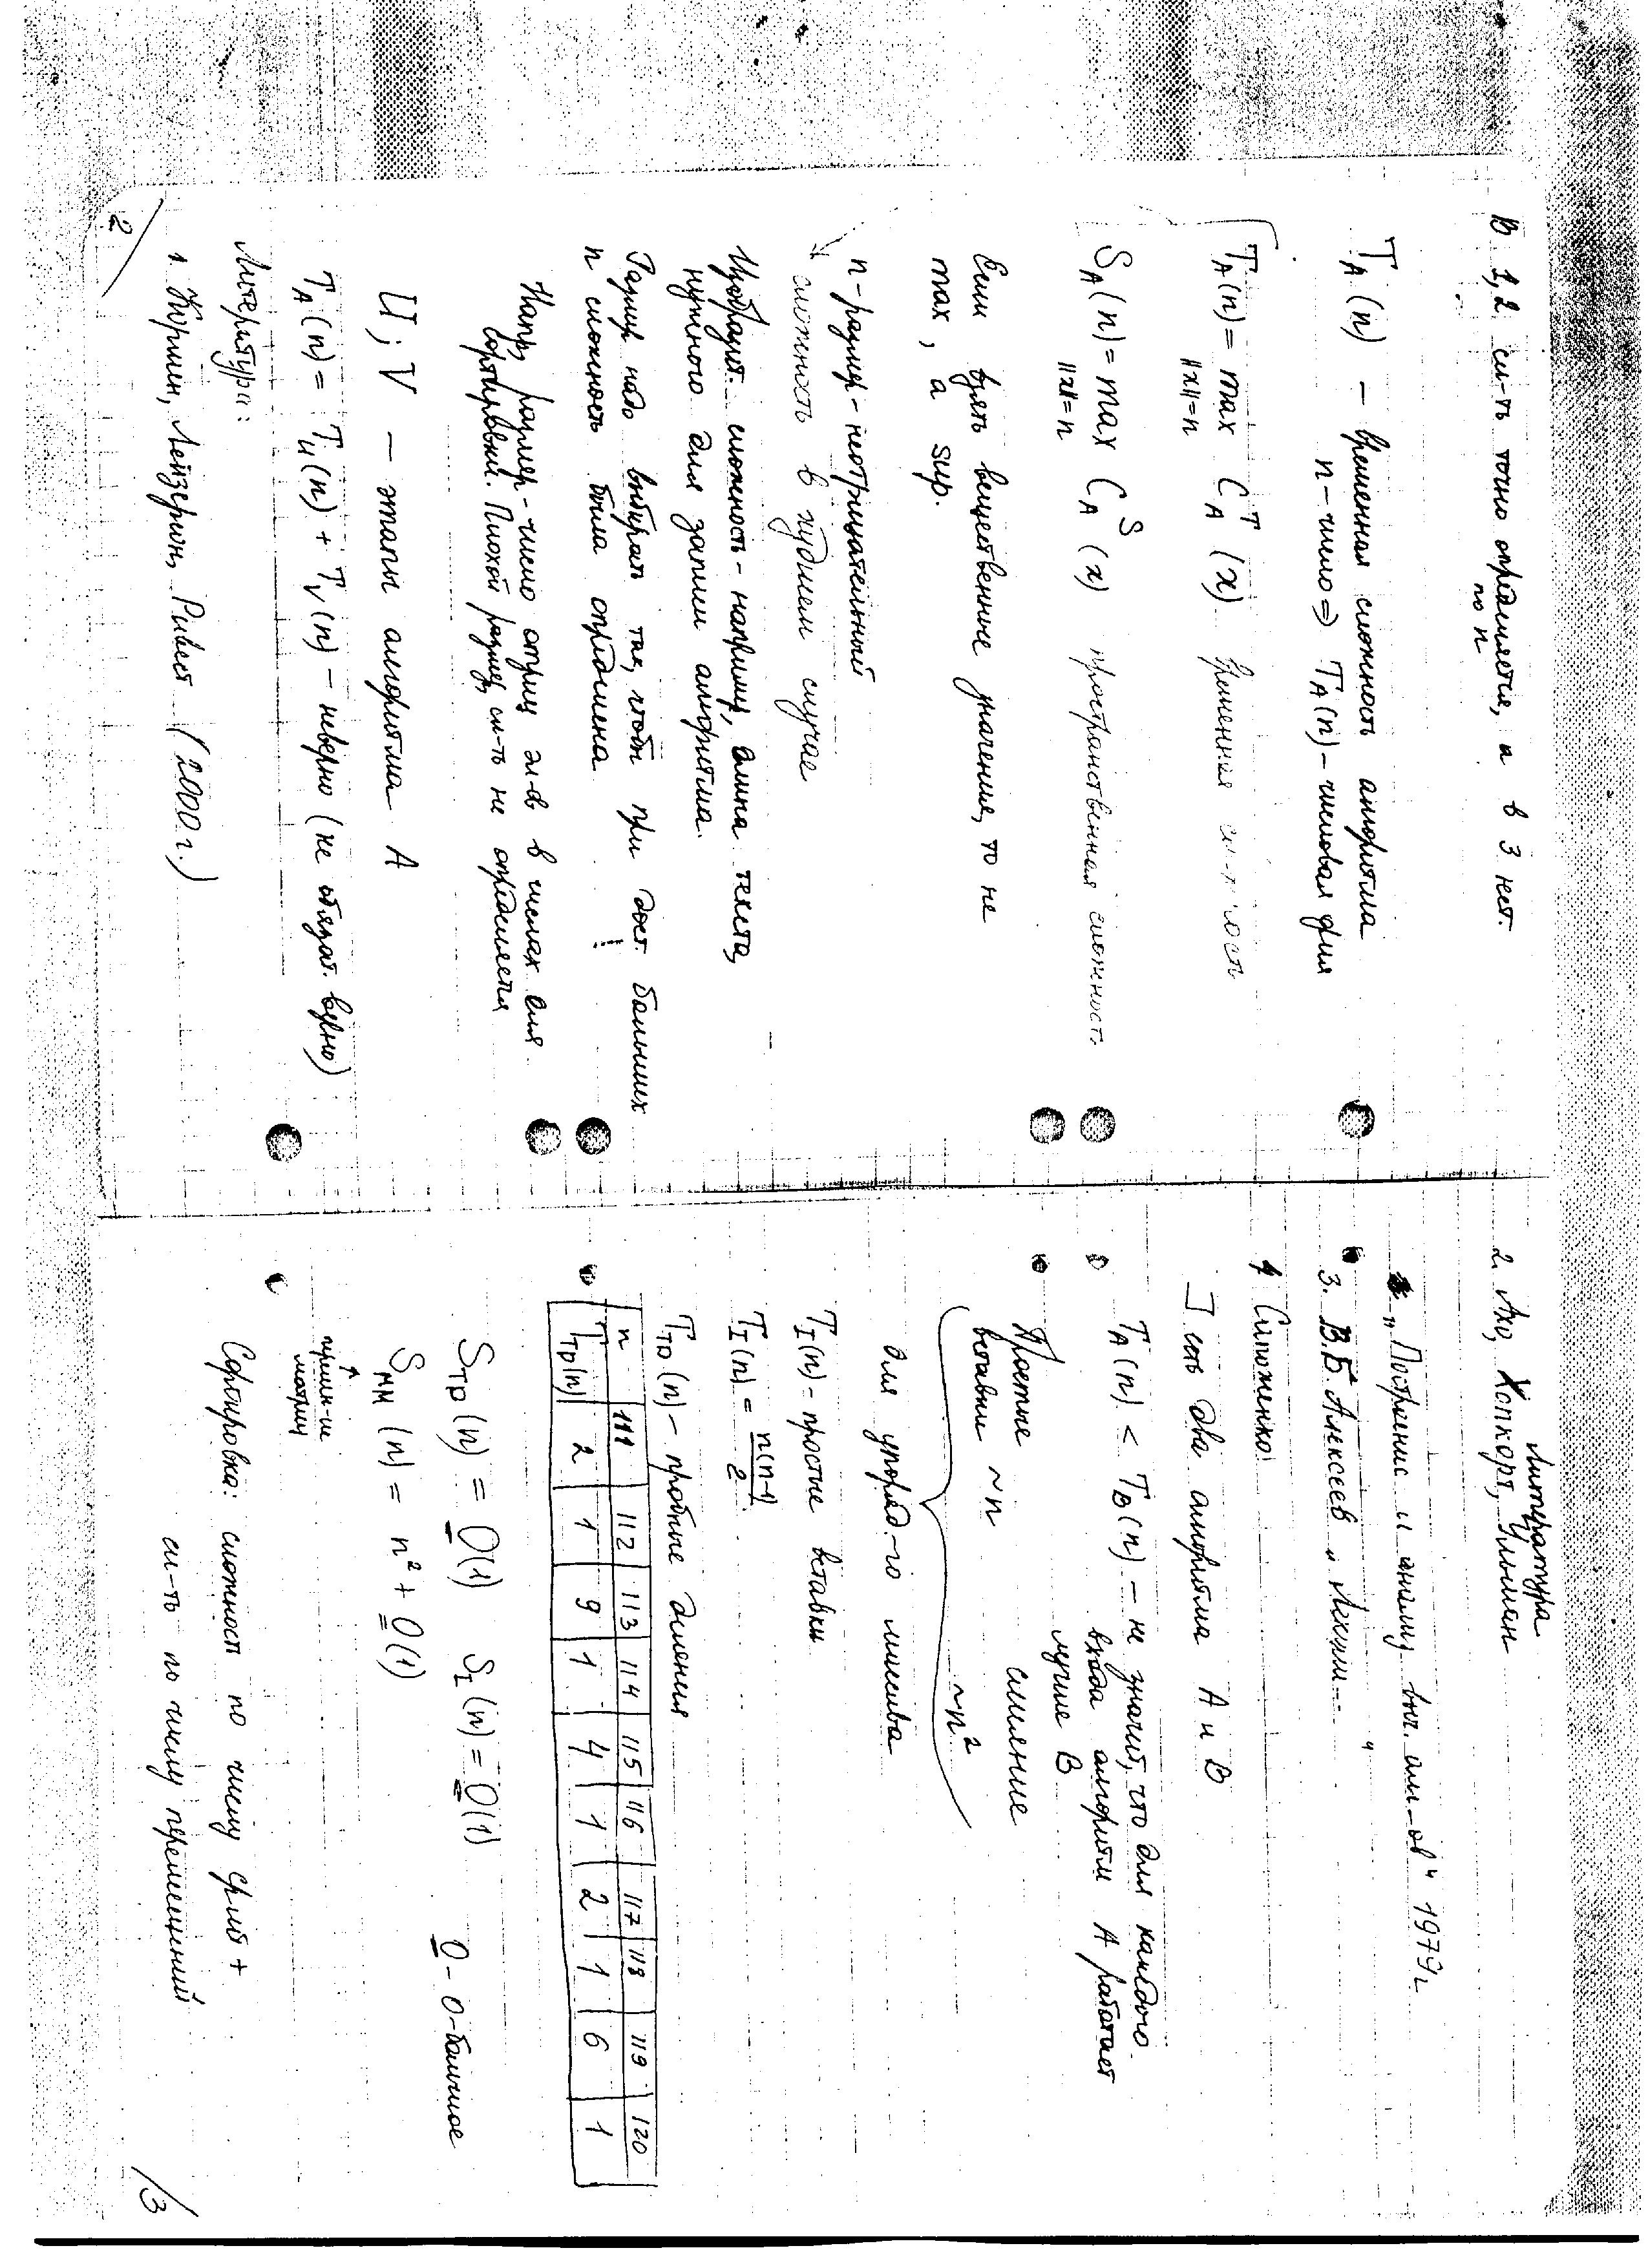 В 1,2 сл-ть точно определяется, а в 3 нет.
по n
T_A(n) — временная сложность алгоритма
n - число ⇒ T_A(n) - числовая ф-ия
T_A(n) = max C_A^T (x) временная
||x||=n
S_A(n) = max C_A^S (x) пространственная сложность
||x||=n
Если взять вещественные значения, то не
max, а sup.
n - размер - неотрицательный
сложность в худшем случае
сложность - например, длина текста,
нужного для записи алгоритма.
Размер надо выбирать так, чтобы при дост. больших
n сложность была определена
Напр, размер - число единиц в числах для
сортировки. Плохой размер, сл-ть не определяется
U, V — этапы алгоритма A
T_A(n) = T_U(n) + T_V(n) - неверно (не обязат. верно)
Литература:
1. Кормен, Лейзерсон, Ривест (2000 г.)
2
Литература
2. Ахо, Хопкорт, Ульман
„Построение и анализ выч. алг-ов“ 1979г
3. В.Б. Алексеев „Лекции“
4 Сапоженко
] есть два алгоритма A и B
T_A(n) < T_B(n) - не значит, что для каждого
входа алгоритм A работает
лучше B
Простые слияние
вставки ~n ~n²
для упоряд-го массива
T_I(n) - простые вставки
T_I(n) = n(n-1)/2
T_TD(n) - пробные деления
n 111 112 113 114 115 116 117 118 119 120
T_TD(n) 2 1 9 1 4 1 2 1 6 1
S_TD(n) = O(1) S_I(n) = O(1) O - О-большое
S_MM(n) = n² + O(1)
матриц
Сортировка: сложность по числу срав +
сл-ть по числу перемещений
/3